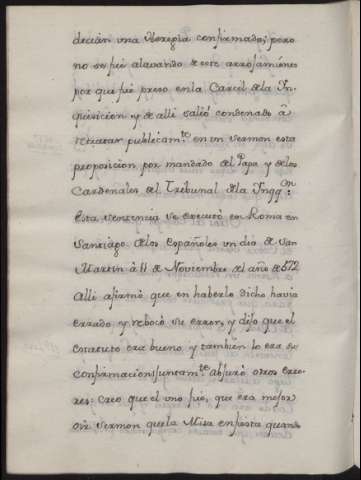 decian una Heregia confirmado; pero
no se fué alavando de este arrojamiento
por que fué preso en la Carcel de la Yn-
quisicion y de alli salió condenado â
retratar publicam.te en un sermon esta
proposicion por mandado del Papa y de los
Cardenales del Tribunal de la Ynqq.on
Esta sentencia se executó en Roma en
Santiago de los Españoles un dia de San
Martin à 11 de Noviembre del año de 572
Alli afirmó que en haberlo dicho havia
errado, y rebocó su error, y dijo que el
estatuto era bueno y tambien lo era su
confirmacion juntam.te abjuró otros erro-
res: creo que el uno fué, que era mejor
oir sermon que la Misa en fiesta quando